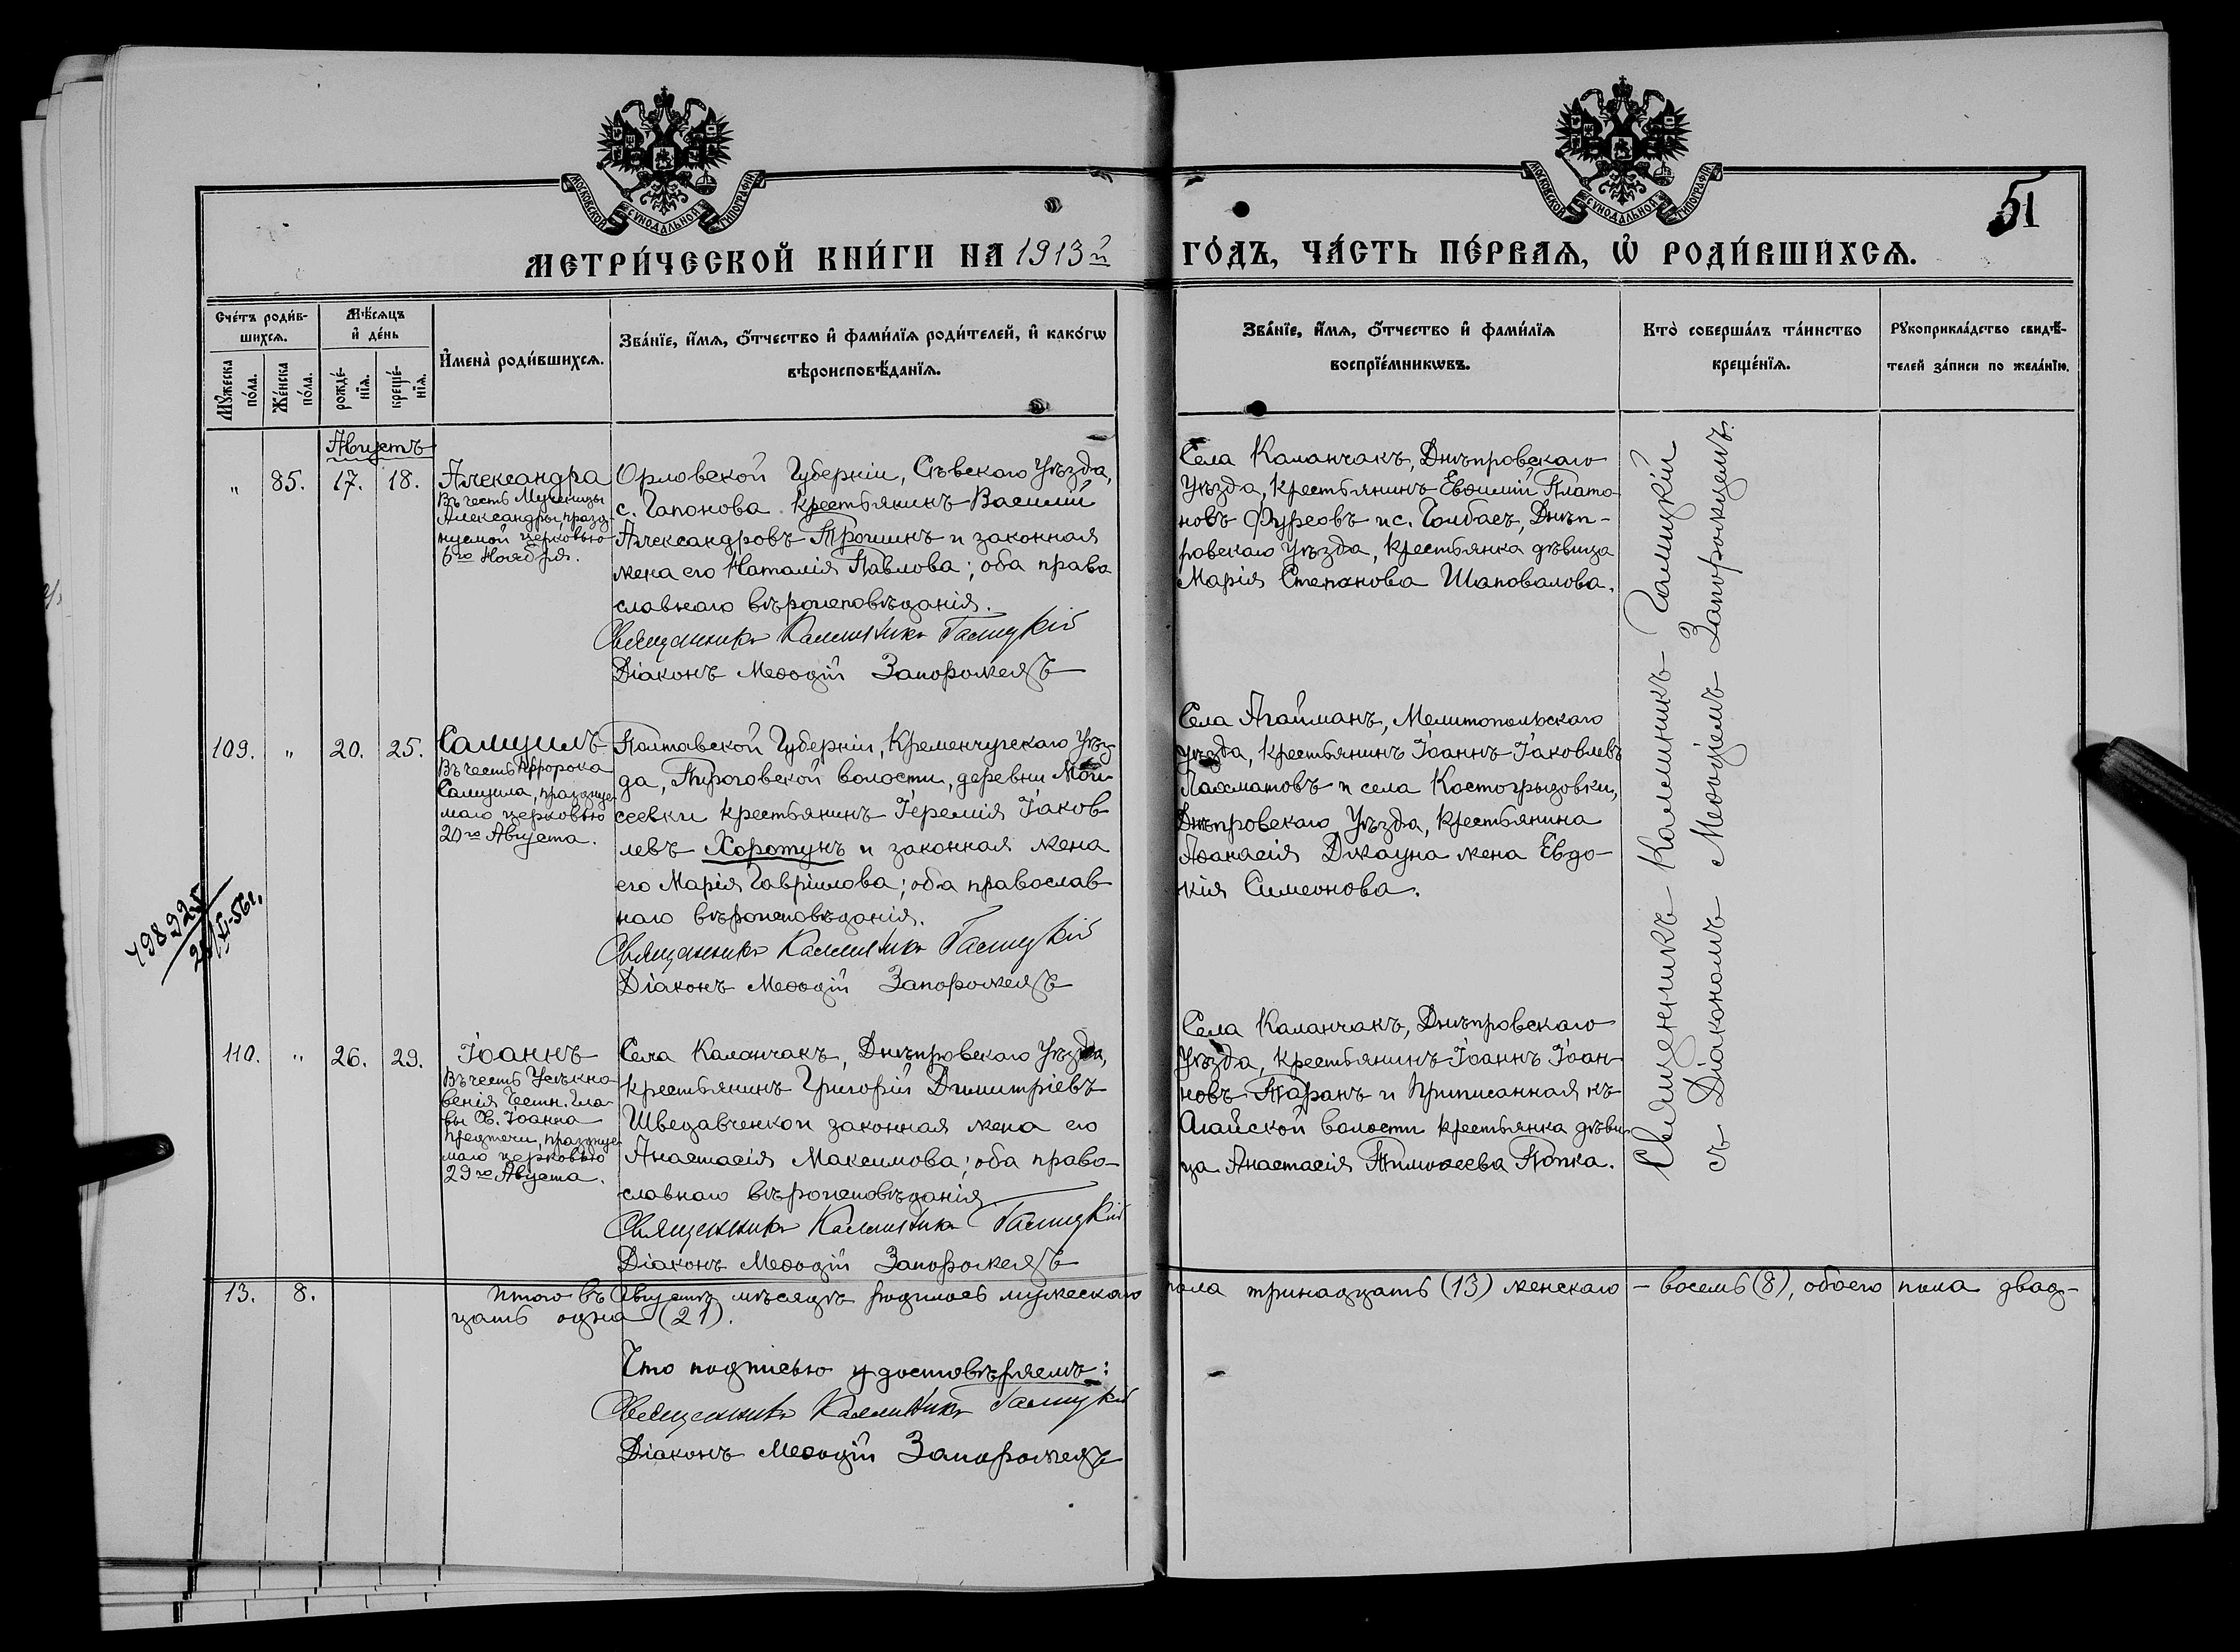 МОСКОВСКОЙ СѴНОДАЛЬНОЙ ТИПОГРАФІИ
МОСКОВСКОЙ СѴНОДАЛЬНОЙ ТИПОГРАФІИ
51
МЕТРИ́ЧЕСКОЙ КНИ́ГИ НА 1913й ГО́ДЪ, ЧА́СТЬ ПЕ́РВАѦ, Ѡ҆ РОДИ́ВШИХСѦ.
Сче́тъ роди́в-
шихсѧ.
Мꙋ́жеска по́ла.
Же́нска по́ла.
Мѣ́сѧцъ
и҆ де́нь
рожде́-
нїѧ.
креще́-
нїѧ.
И҆мена̀ роди́вшихсѧ.
Зва́нїе, и҆́мѧ, ѻ҆́тчество и҆ фами́лїѧ роди́телей, и҆ како́гѡ
вѣроисповѣ́данїѧ.
Зва́нїе, и҆́мѧ, ѻ҆́тчество и҆ фами́лїѧ
воспрїе́мникѡвъ.
Кто̀ соверша́лъ та́инство
креще́нїѧ.
Рꙋкоприкла́дство свидѣ́-
телей за́писи по жела́нїю.
Августъ
„ 85. 17. 18.
Александра
Въ честь Мученицы
Александры, празд-
нуемой церковью
6го Ноября.
Орловской Губерніи, Сѣвскаго Уѣзда,
с. Гапонова крестьянинъ Василій
Александровъ Трошинъ и законная
жена его Наталія Павлова; оба право
славнаго вѣроисповѣданія.
Священникъ Каллиникъ Галицкій
Діаконъ Меѳодій Запорожецъ
Села Каланчакъ, Днѣпровскаго
Уѣзда, крестьянинъ Евѳимій Плато-
новъ Фурсовъ и с. Чолбасъ, Днѣп-
ровскаго Уѣзда, крестьянка дѣвица
Марія Степанова Шаповалова.
109. „ 20. 25.
Самуилъ
Въ честь Пророка
Самуила, празднуе-
маго церковью
20го Августа.
Полтавской Губерніи, Кременчугскаго Уѣз-
да, Пироговской волости, деревни Мои-
сеевки крестьянинъ Іеремія Іаков
левъ Хоротунъ и законная жена
его Марія Гавріилова; оба православ
наго вѣроисповѣданія.
Священникъ Каллиникъ Галицкій
Діаконъ Меѳодій Запорожецъ
Села Агайманъ, Мелитопольскаго
Уѣзда, крестьянинъ Іоаннъ Іаковлевъ
Лахматовъ и села Костогрызовки,
Днѣпровскаго Уѣзда, крестьянина
Аѳанасія Джауна жена Евдо-
кія Симеонова.
110. „ 26. 29.
Іоаннъ
Въ честь Усѣкно-
венія Честн. Гла-
вы Св. Іоанна
Предтечи, празднуе-
маго церковью
29го Августа.
Села Каланчакъ, Днѣпровскаго Уѣзда,
крестьянинъ Григорій Димитріевъ
Шведавченко и законная жена его
Анастасія Максимова; оба право-
славнаго вѣроисповѣданія
Священникъ Каллиникъ Галицкій
Діаконъ Меѳодій Запорожецъ
Села Каланчакъ, Днѣпровскаго
Уѣзда, крестьянинъ Іоаннъ Іоан-
новъ Таранъ и приписанная къ
Агайской волости крестьянка дѣви-
ца Анастасія Тимоѳеева Попка.
Священникъ Каллиникъ Галицкій
съ Діакономъ Меѳодіемъ Запорожцемъ.
13. 8. Итого въ Августѣ мѣсяцѣ родилось мужескаго пола тринадцать (13) женскаго – восемь (8), обоего пола двад-
цать одна (21).
Что подписью удостовѣряемъ:
Священникъ Каллиникъ Галицкій
Діаконъ Меѳодій Запорожецъ